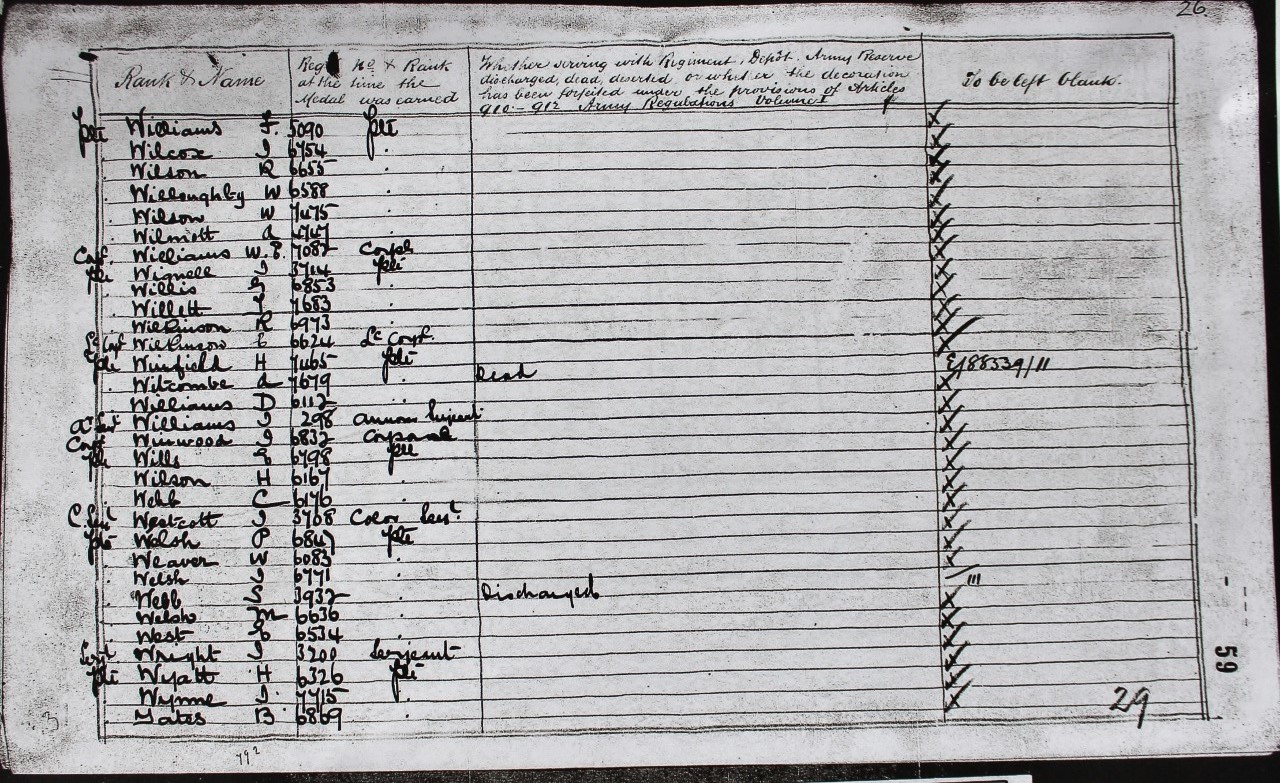 26.
Rank & Name
Regl no & Rank at the time the Medal was earned
Whether serving with Regiment, Depôt, Army Reserve
discharged, dead, deserted, or whether the decoration
has been forfeited under the provisions of Articles
910-912 Army Regulations Volume I
To be left blank.
Pte Williams F. 5090 Pte X
Wilcox J 6754 . X
Wilson R 6655 . X
Willoughby W 6588 . X
Wilson W 7475 . X
Wilmott a 4747 . X
Williams W.E. 7082 Corpl X
Pte Wignell J 3714 Pte X
Willis G 6853 . X
Willett 7683 . X
Wilkinson R 6973 . X
Wilkinson 6624 Lc Corpl. X
Pte Winfield H 7465 Pte E/88339/11
Witcombe a 7679 .. Dead X
Williams D 6112 .. X
Williams J 298 X
Corpl Winwood J 6832 Corporal X
Pte Wills 6798 Pte X
Wilson H 6167 . X
Webb C 6176 . X
C. Sert Westcott J 3708 Color Sert. X
Pte Walsh P 6847 Pte X
Weaver W 6083 . X
Welsh J 6771 .
Webb 3932 . Discharged X
Welsh M 6636 . X
West 6534 . X
Sergt Wright J 3200 Serjeant X
Pte Wyatt H 6326 Pte X
Wynne J 7715 . X
Yates B 6869 .
29
59
792